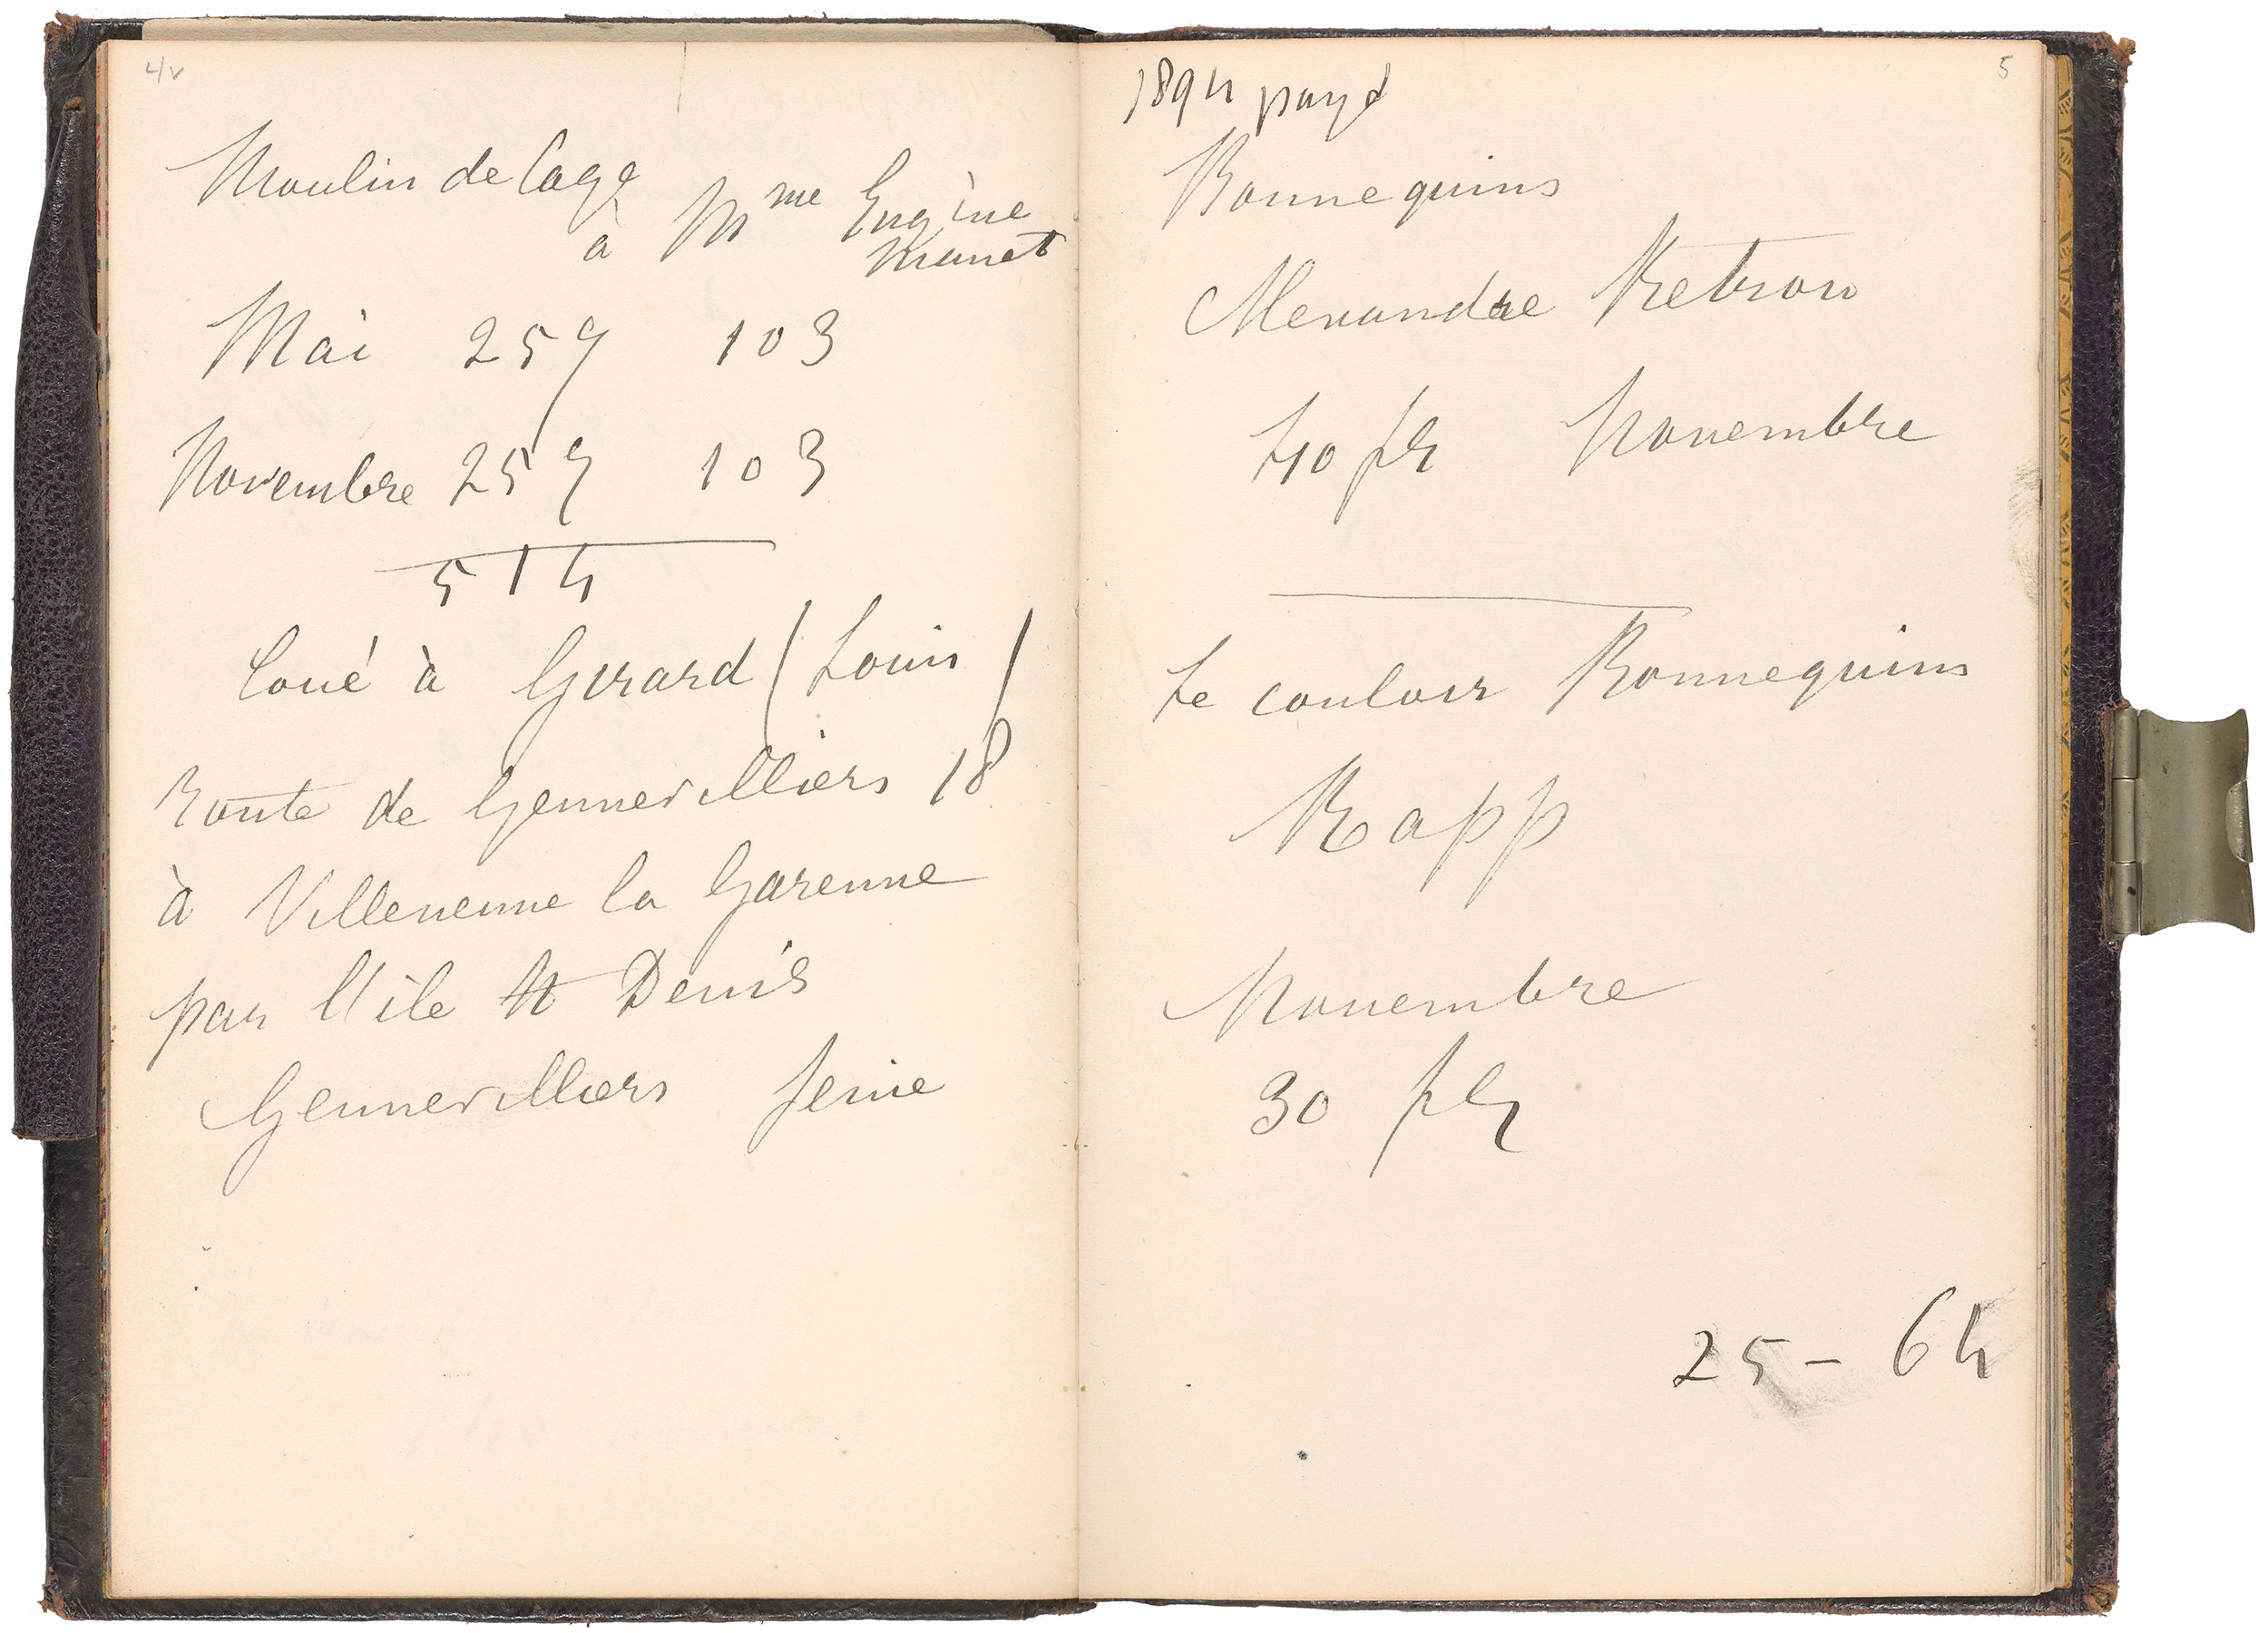 4v
Moulin de Cage
à Mme Eugène
Manet
Mai 257 103
Novembre 257 103
514
Loué à Girard (Louis)
Route de Gennevilliers 18
à Villeneuve la Garenne
par l'ile St Denis
Gennevilliers Seine
5
1894 payé
Bonnequins
Alexandre Retron
40 fr Novembre
Le couloir Bonnequins
Rapp
Novembre
30 fr
25 - 64